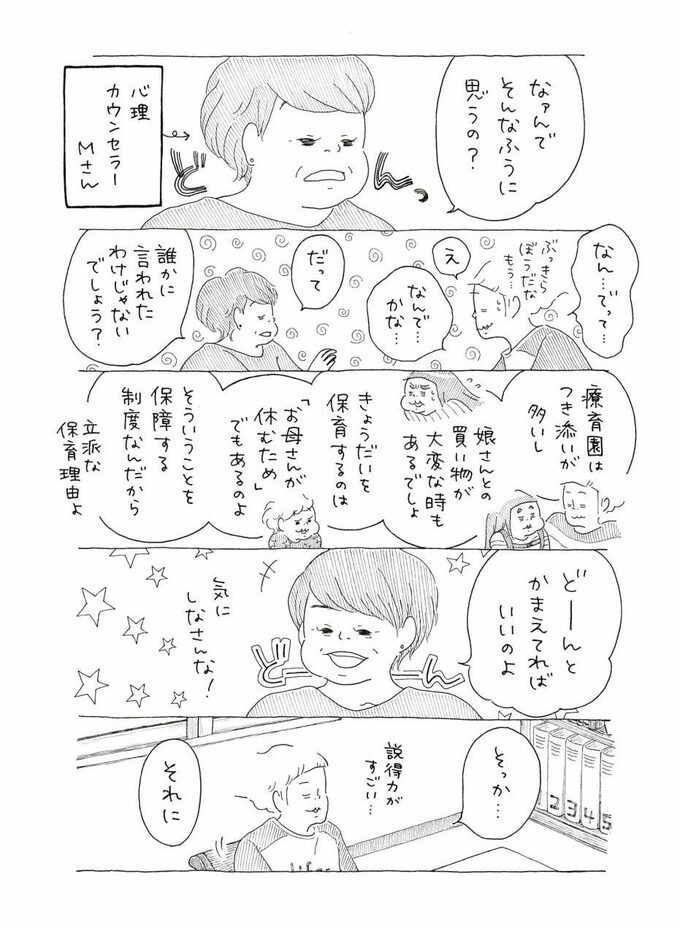 なァんで
そんなふうに
思うの？
どーんっ
心理
カウンセラー
Mさん
なん…でって…
ぶっきら
ぼうだな
もう…
え
なんで…
かな…
だって
誰かに
言われた
わけじゃない
でしょう？
療育園は
つき添いが
多いし
娘さんとの
買い物が
大変な時も
あるでしょ
きょうだいを
保育するのは
「お母さんが
休むため」
でもあるのよ
そういうことを
保障する
制度なんだから
立派な
保育理由よ
どーんと
かまえてれば
いいのよ
どーん
気に
しなさんな！
そっか…
説得力が
すごい…
それに
1 2 3 4 5